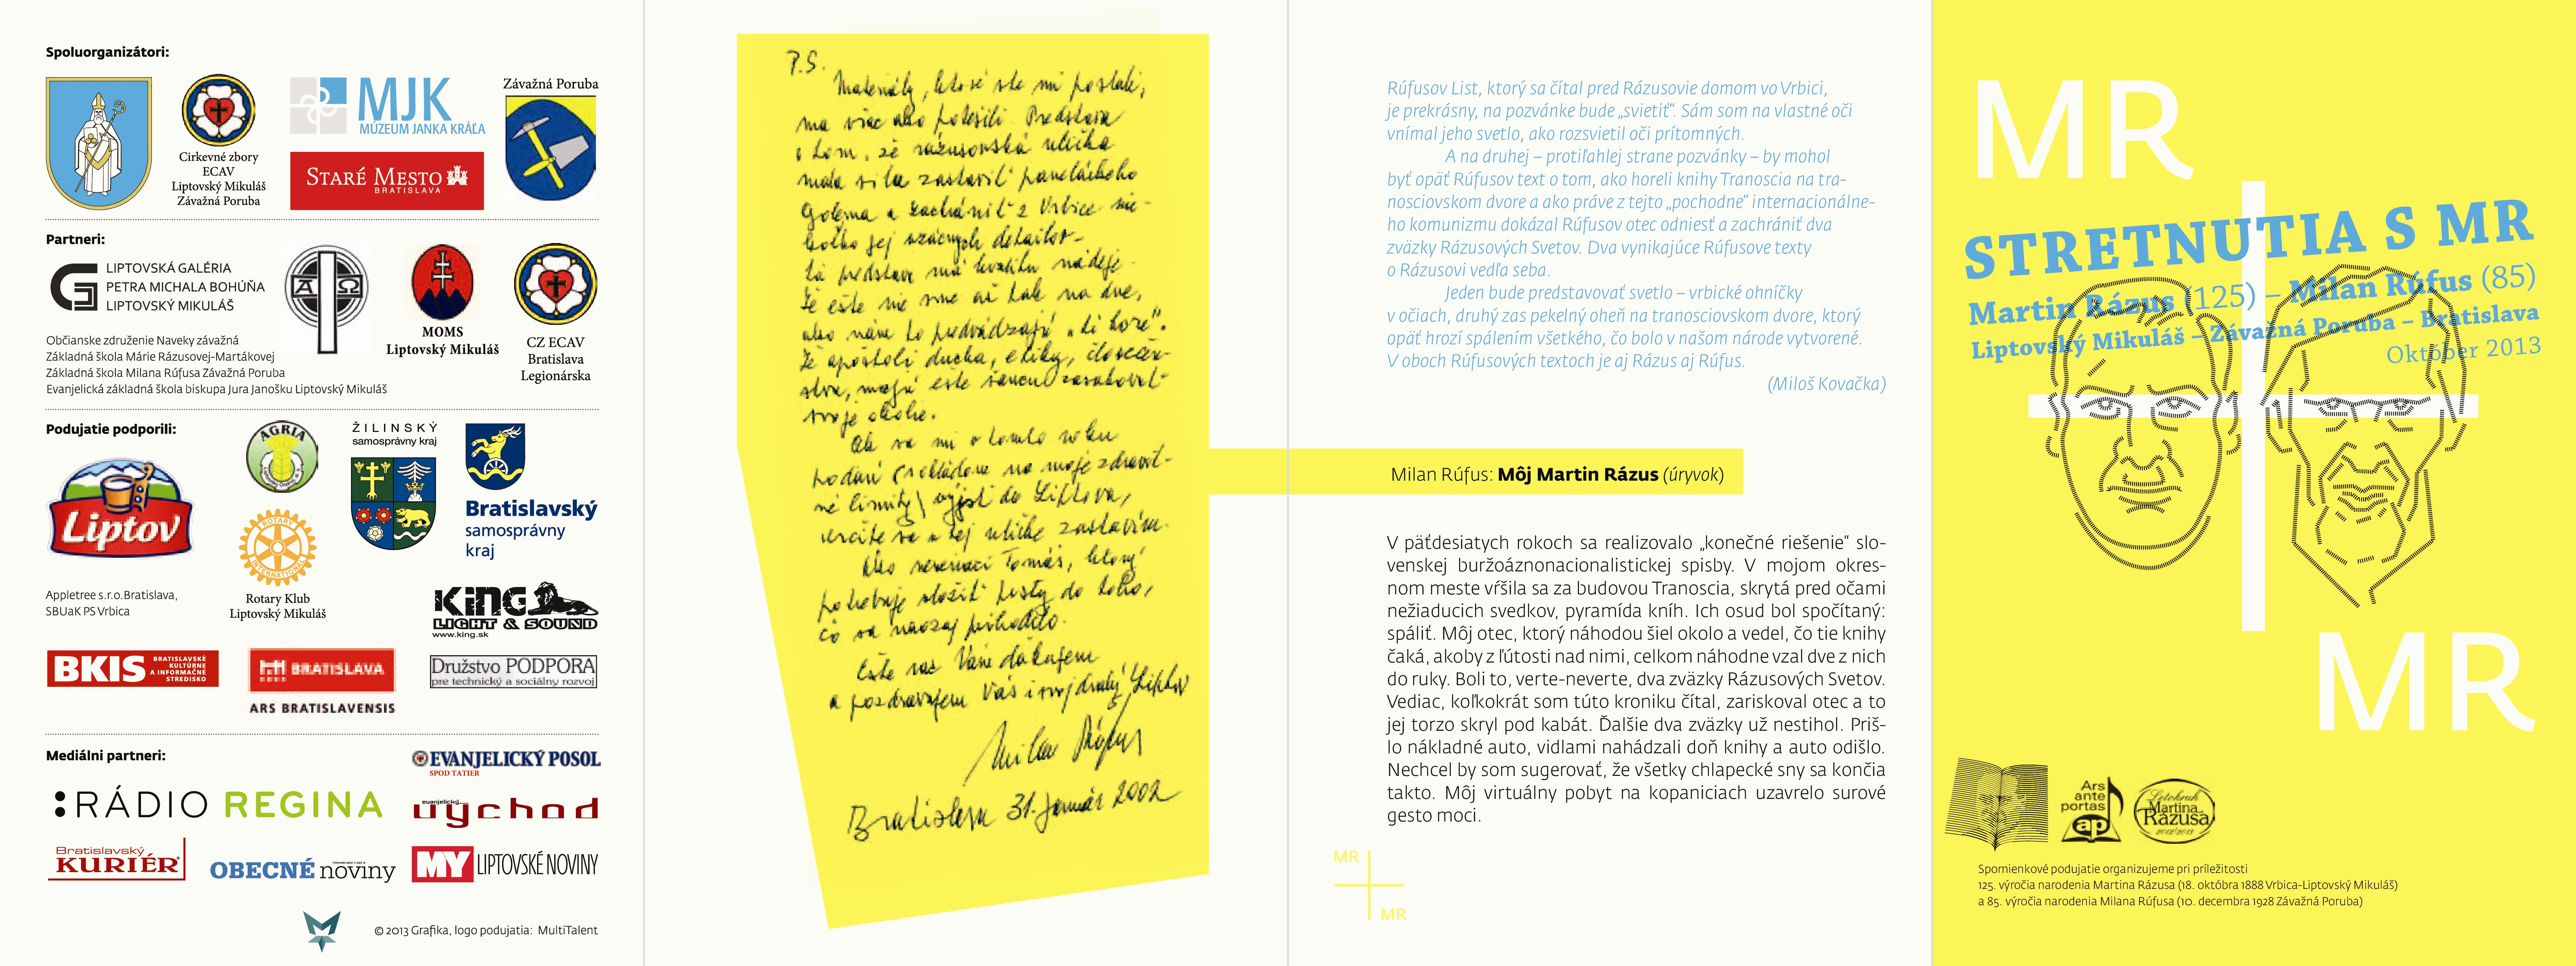 Spoluorganizátori:
Cirkevné zbory
ECAV
Liptovský Mikuláš
Závažná Poruba
MJK
MÚZEUM JANKA KRÁĽA
STARÉ MESTO
BRATISLAVA
Závažná Poruba
Partneri:
LIPTOVSKÁ GALÉRIA
PETRA MICHALA BOHÚŇA
LIPTOVSKÝ MIKULÁŠ
Α Ω
MOMS
Liptovský Mikuláš
CZ ECAV
Bratislava
Legionárska
Občianske združenie Naveky závažná
Základná škola Márie Rázusovej-Martákovej
Základná škola Milana Rúfusa Závažná Poruba
Evanjelická základná škola biskupa Jura Janošku Liptovský Mikuláš
Podujatie podporili:
Liptov
AGRIA
ROTARY
INTERNATIONAL
Rotary Klub
Liptovský Mikuláš
ŽILINSKÝ
samosprávny kraj
Bratislavský
samosprávny
kraj
Appletree s.r.o.Bratislava,
SBUaK PS Vrbica
KING
LIGHT & SOUND
www.king.sk
BKIS
BRATISLAVSKÉ
KULTÚRNE
A INFORMAČNÉ
STREDISKO
BRATISLAVA
ARS BRATISLAVENSIS
Družstvo PODPORA
pre technický a sociálny rozvoj
Mediálni partneri:
EVANJELICKÝ POSOL
SPOD TATIER
RÁDIO REGINA
evanjelický
východ
Bratislavský
KURIÉR
OBECNÉ noviny
MY LIPTOVSKÉ NOVINY
© 2013 Grafika, logo podujatia: MultiTalent
P.S.
Materiály, ktoré ste mi poslali,
ma viac ako potešili. Predstava
o tom, že rázusovská ulička
mala silu zastaviť paneláckeho
Golema a zachrániť z Vrbice nie-
koľko jej vzácnych detailov –
tá predstava má kvalitu nádeje.
Že ešte nie sme až tak na dne,
ako nám to predvádzajú „tí hore“.
Že apoštoli ducha, etiky, človečen-
stva, majú ešte šancu zasahovať
svoje okolie.
Ak sa mi v tomto roku
podarí (vzhľadom na moje zdravot-
né limity) výjsť do Liptova,
určite sa v tej uličke zastavím.
Ako neveriaci Tomáš, ktorý
potrebuje vložiť prsty do toho,
čo sa naozaj prihodilo.
Ešte raz Vám ďakujem
a pozdravujem Vás i svoj drahý Liptov
Milan Rúfus
Bratislava 31. január 2002
Rúfusov List, ktorý sa čítal pred Rázusovie domom vo Vrbici,
je prekrásny, na pozvánke bude „svietiť“. Sám som na vlastné oči
vnímal jeho svetlo, ako rozsvietil oči prítomných.
A na druhej – protiľahlej strane pozvánky – by mohol
byť opäť Rúfusov text o tom, ako horeli knihy Tranoscia na tra-
nosciovskom dvore a ako práve z tejto „pochodne“ internacionálne-
ho komunizmu dokázal Rúfusov otec odniesť a zachrániť dva
zväzky Rázusových Svetov. Dva vynikajúce Rúfusove texty
o Rázusovi vedľa seba.
Jeden bude predstavovať svetlo – vrbické ohníčky
v očiach, druhý zas pekelný oheň na tranosciovskom dvore, ktorý
opäť hrozí spálením všetkého, čo bolo v našom národe vytvorené.
V oboch Rúfusových textoch je aj Rázus aj Rúfus.
(Miloš Kovačka)
Milan Rúfus: Môj Martin Rázus (úryvok)
V päťdesiatych rokoch sa realizovalo „konečné riešenie“ slo-
venskej buržoáznonacionalistickej spisby. V mojom okres-
nom meste vŕšila sa za budovou Tranoscia, skrytá pred očami
nežiaducich svedkov, pyramída kníh. Ich osud bol spočítaný:
spáliť. Môj otec, ktorý náhodou šiel okolo a vedel, čo tie knihy
čaká, akoby z ľútosti nad nimi, celkom náhodne vzal dve z nich
do ruky. Boli to, verte-neverte, dva zväzky Rázusových Svetov.
Vediac, koľkokrát som túto kroniku čítal, zariskoval otec a to
jej torzo skryl pod kabát. Ďalšie dva zväzky už nestihol. Priš-
lo nákladné auto, vidlami nahádzali doň knihy a auto odišlo.
Nechcel by som sugerovať, že všetky chlapecké sny sa končia
takto. Môj virtuálny pobyt na kopaniciach uzavrelo surové
gesto moci.
MR
MR
MR
STRETNUTIA S MR
Martin Rázus (125) – Milan Rúfus (85)
Liptovský Mikuláš – Závažná Poruba – Bratislava
Október 2013
MR
Ars
ante
portas
ap
Letokruh
Martina
Rázusa
2012/2013
Spomienkové podujatie organizujeme pri príležitosti
125. výročia narodenia Martina Rázusa (18. októbra 1888 Vrbica-Liptovský Mikuláš)
a 85. výročia narodenia Milana Rúfusa (10. decembra 1928 Závažná Poruba)